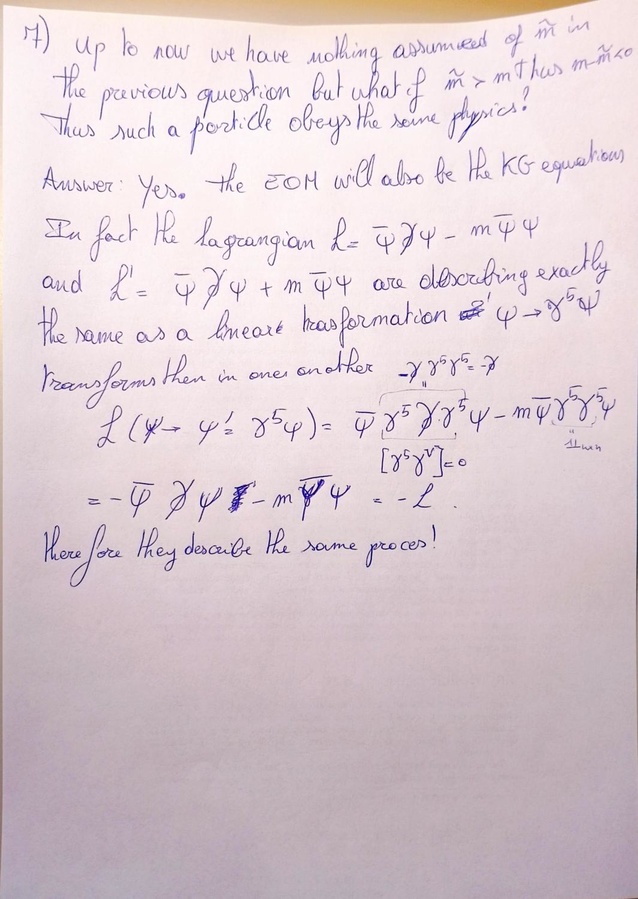 7) up to now we have nothing assumed of m̃ in
the previous question but what if m̃ > m thus m-m̃<0
Thus such a particle obeys the same physics?
Answer: Yes. the EOM will also be the KG equations
In fact the Lagrangian ℒ = ψ̄ ∂̸ ψ - m ψ̄ ψ
and ℒ' = ψ̄ ∂̸ ψ + m ψ̄ ψ are describing exactly
the same as a linear trasformation ψ → γ⁵ψ
transforms then in one another -∂̸ γ⁵γ⁵ = -∂̸
ℒ (ψ → ψ' = γ⁵ψ) = ψ̄ γ⁵ ∂̸ γ⁵ ψ - m ψ̄ γ⁵γ⁵ ψ
[γ⁵γᵘ]=0
= - ψ̄ ∂̸ ψ - m ψ̄ ψ = - ℒ .
therefore they describe the same proces!